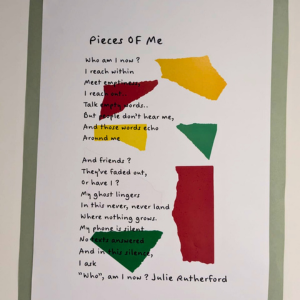 Pieces OF Me
Who am I now?
I reach within
Meet emptiness,
I reach out..
Talk empty words..
But people don't hear me,
And those words echo
Around me
And friends?
They've faded out,
Or have I?
My ghost lingers
In this never, never land
Where nothing grows.
My phone is silent
No texts answered
And in this silence,
I ask
"Who", am I now? Julie Rutherford